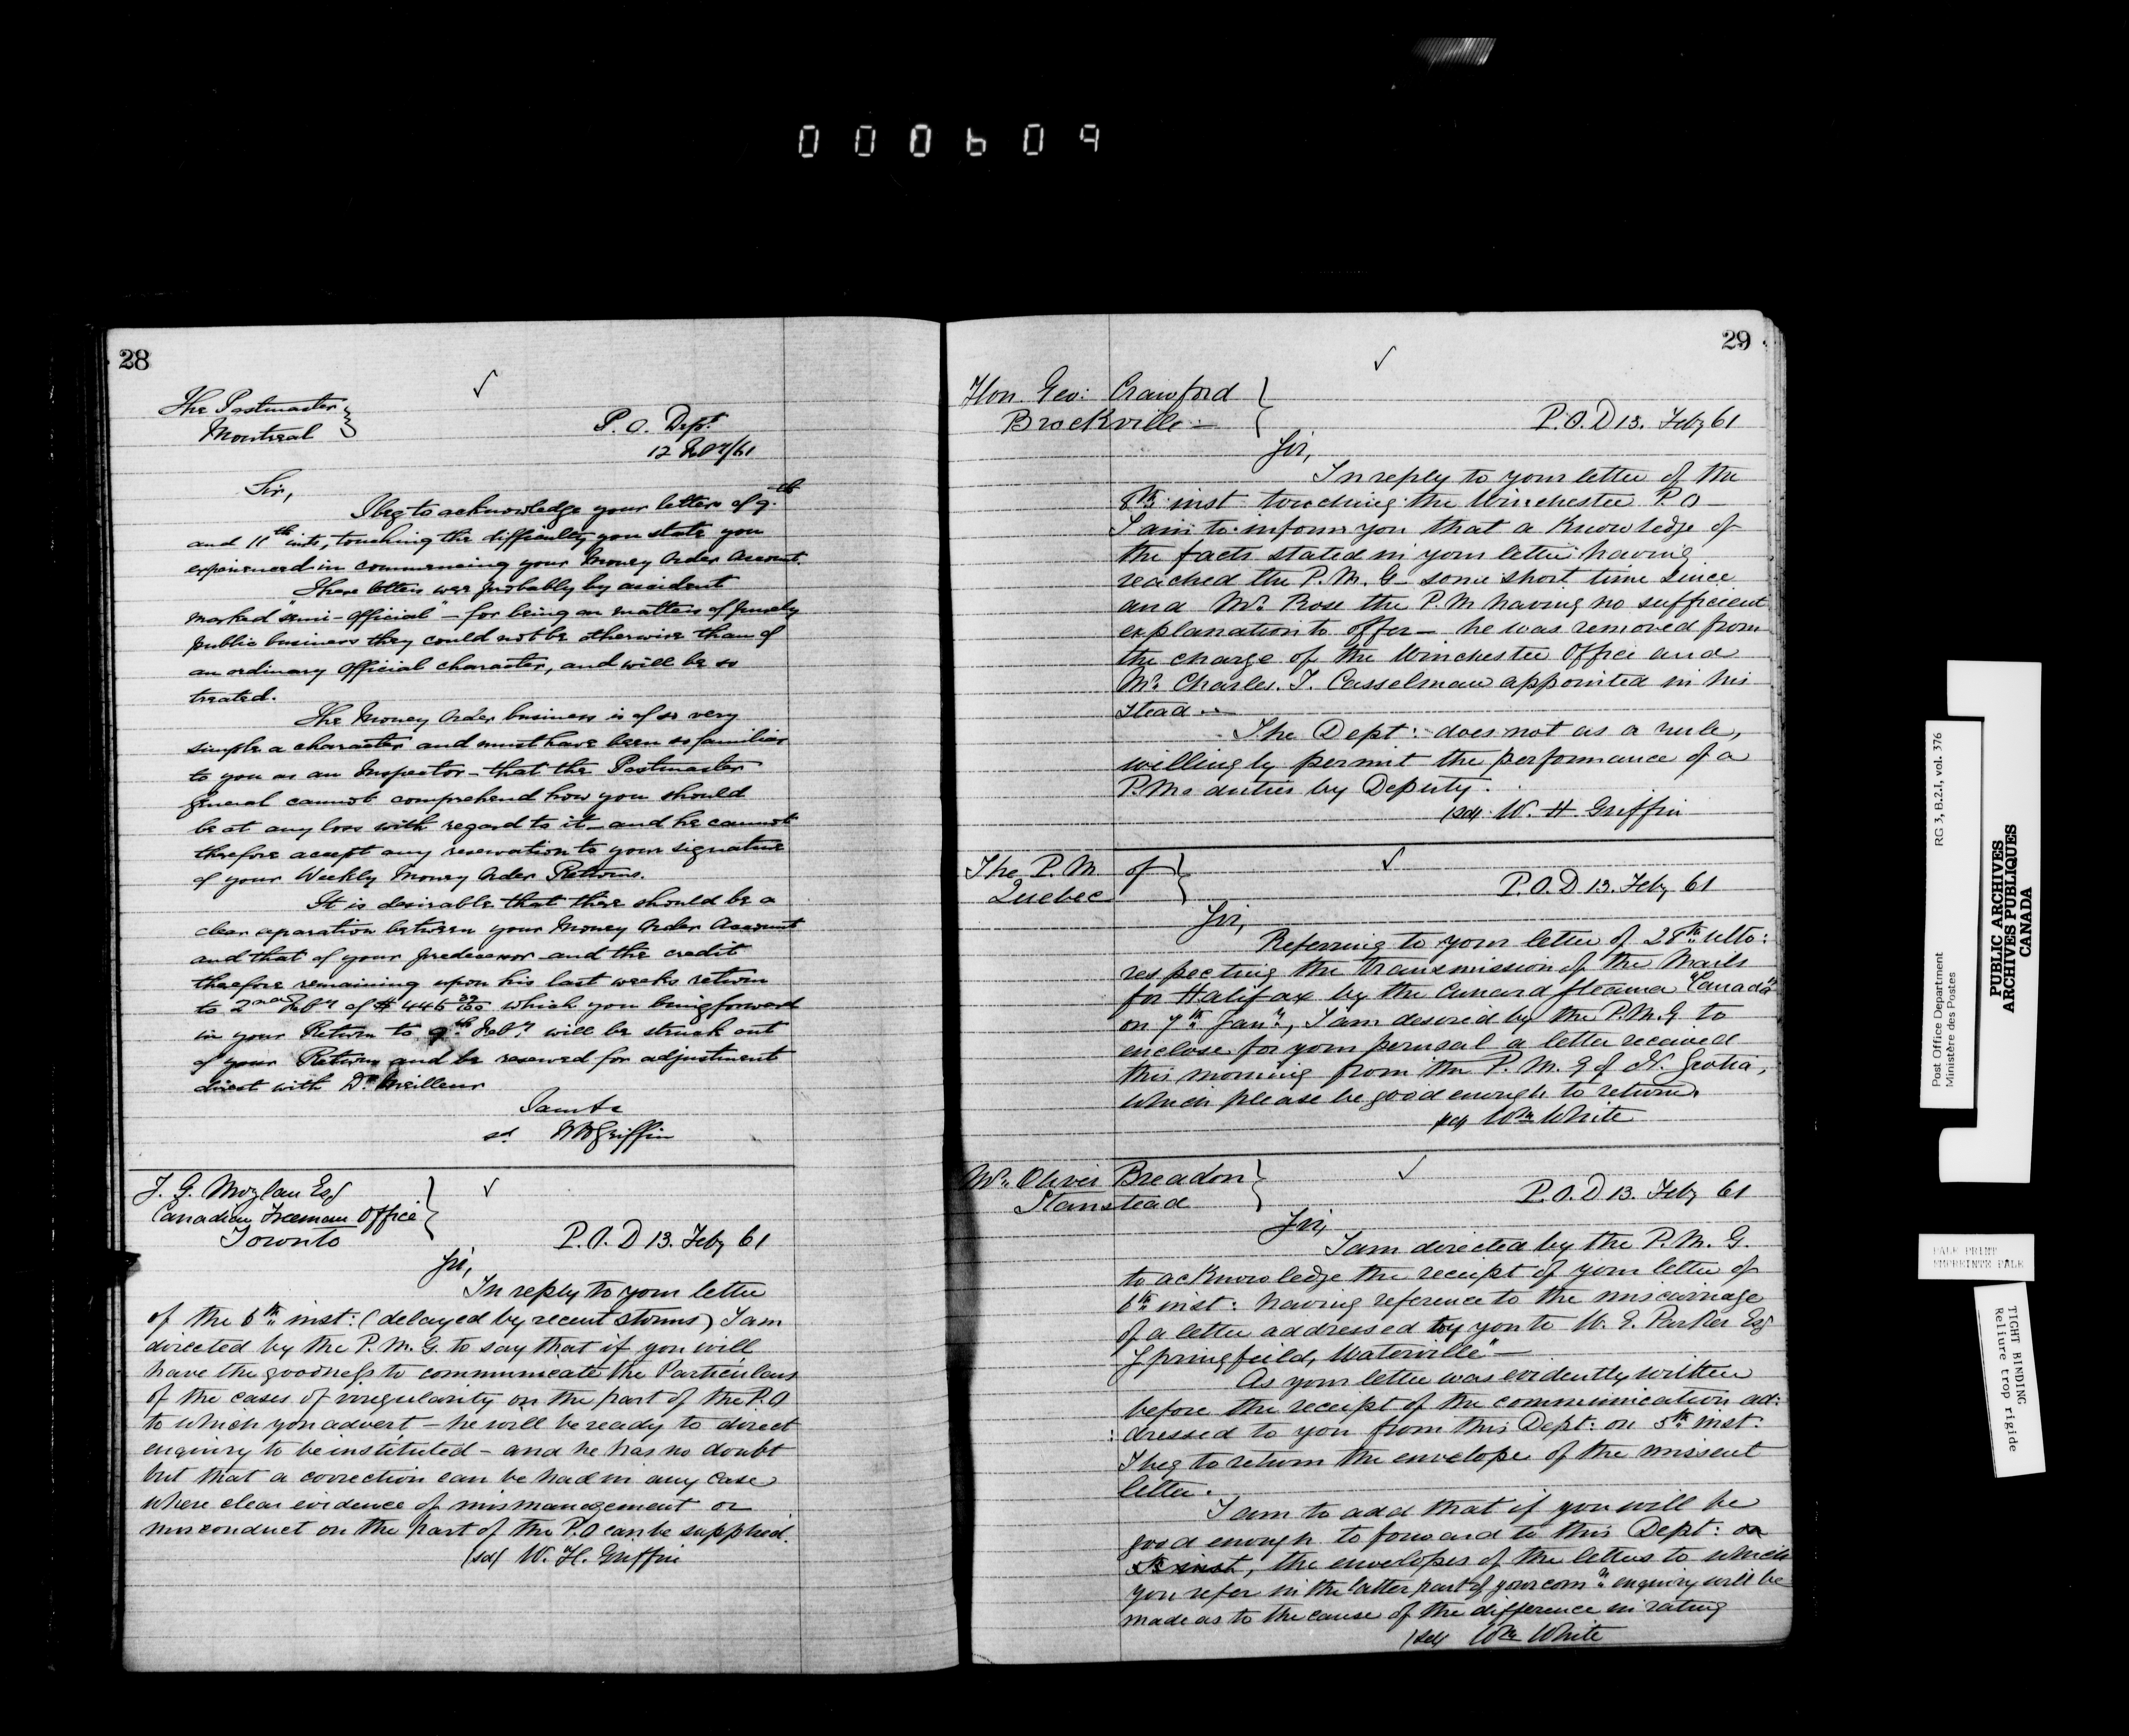 000609
28
The Postmaster
Montreal
P. O. Dept.
12 Feby/61
Sir,
I beg to acknowledge your letters of 9th
and 11th inst, touching the difficulty you state you
experienced in commencing your Money Order Account.
These letters were probably by accident
marked "semi-official" - for being on matters of purely
public business they could not be otherwise than of
an ordinary Official character, and will be so
treated.
The Money Order business is of so very
simple a character and must have been so familiar
to you as an Inspector - that the Postmaster
General cannot comprehend how you should
be at any loss with regard to it - and he cannot
therefore accept any reservation to your signature
of your Weekly Money Order Returns.
It is desirable that there should be a
clear separation between your Money Order Account
and that of your predecessor and the credit
therefore remaining upon his last weeks return
to 2nd Feby of $446 which you bring forward
in your Return to 9th Feby will be struck out
of your Return and be reserved for adjustment
direct with Dr Meilleur
I am &c
sd W H Griffin
J. G. Moylan Esq
Canadian Freeman Office
Toronto
P. O. D 13. Feby 61
Sir,
In reply to your letter
of the 6th inst: (delayed by recent storms) I am
directed by the P. M. G. to say that if you will
have the goodness to communicate the Particulars
of the cases of irregularity on the part of the P.O
to which you advert - he will be ready to direct
enquiry to be instituted - and he has no doubt
but that a correction can be had in any case
where clear evidence of mismanagement or
misconduct on the part of the P.O can be supplied.
(sd) W. H. Griffin
29
Hon. Geo: Crawford
Brockville
P. O. D 13. Feby 61
Sir,
In reply to your letter of the
8th inst touching the Winchester P. O -
I am to inform you that a Knowledge of
the facts stated in your letter having
reached the P. M. G - some short time since
and Mr Rose the P. M having no sufficient
explanation to offer - he was removed from
the charge of the Winchester Office and
Mr Charles. T. Casselman appointed in his
stead
The Dept: does not as a rule,
willingly permit the performance of a
P.Ms duties by Deputy.
(sd) W. H. Griffin
The P. M of
Quebec
P. O. D 13. Feby 61
Sir,
Referring to your letter of 28th ulto:
respecting the transmission of the Mails
for Halifax by the Cunard Steamer "Canada"
on 7th Jany, I am desired by the P. M. G to
enclose for your perusal a letter received
this morning from the P. M. G of N. Scotia,
which please be good enough to return.
(sd) Wm White
Mr. Oliver Breadon
Stanstead
P. O. D 13. Feby 61
Sir,
I am directed by the P. M. G.
to acknowledge the receipt of your letter of
6th inst: having reference to the miscarriage
of a letter addressed by you to W. E. Parker Esq
Springfeild, Waterville" -
As your letter was evidently written
before the receipt of the communication ad:
: dressed to you from this Dept: on 5th inst:
I beg to return the envelope of the missent
letter.
I am to add that if you will be
good enough to forward to this Dept: on
5th inst, the envelopes of the letters to which
you refer in the latter part of your comn enquiry will be
made as to the cause of the difference in rating
(sd) Wm White
Post Office Department
Ministère des Postes
RG 3, B.2.I, vol. 376
PUBLIC ARCHIVES
ARCHIVES PUBLIQUES
CANADA
PALE PRINT
EMPREINTE PALE
TIGHT BINDING
Reliure trop rigide